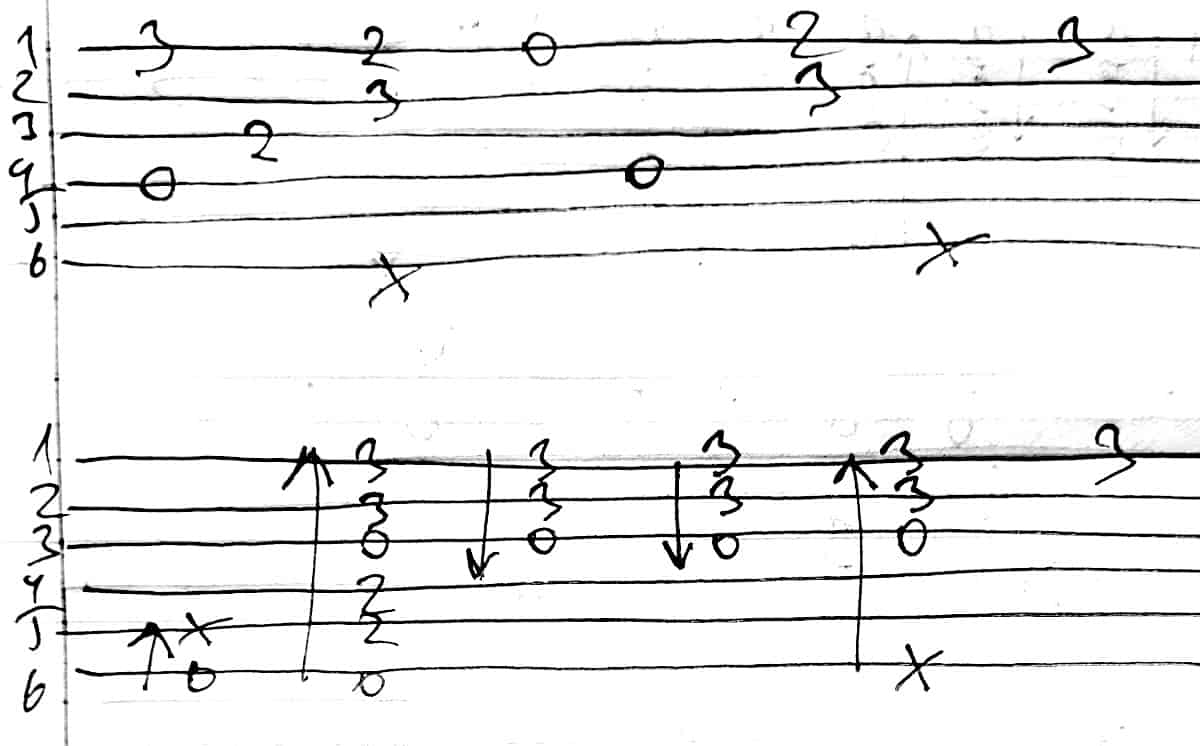 1 3 2 0 2 3
2 3 3
3 2
4 0 0
5
6 X X
1 3 3 3 3 3
2 3 3 3 3
3 0 0 0 0
4 2
5 X 2
6 0 0 X